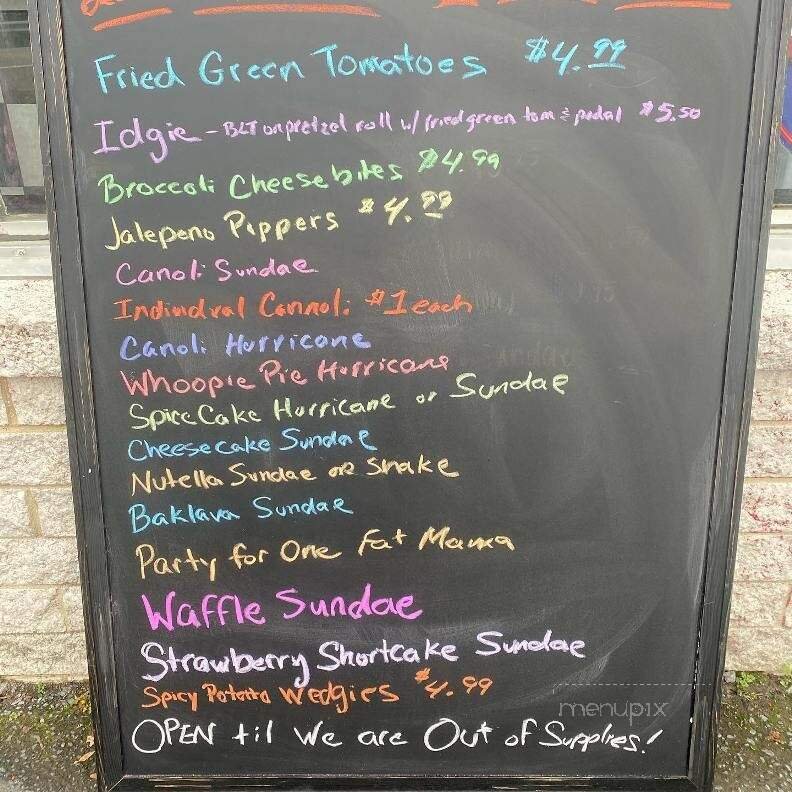 Fried Green Tomatoes $4.99
Idgie - BLT on pretzel roll w/ fried green tom & $5.50
Broccoli Cheesebites $4.99
Jalepeno Poppers $4.99
Canoli Sundae
Individual Cannoli $1 each
Canoli Hurricane
Whoopie Pie Hurricane
Spice Cake Hurricane or Sundae
Cheesecake Sundae
Nutella Sundae or Shake
Baklava Sundae
Party for One Fat Mama
Waffle Sundae
Strawberry Shortcake Sundae
Spicy Potato Wedgies $4.99
OPEN til We are Out of Supplies!
menupix